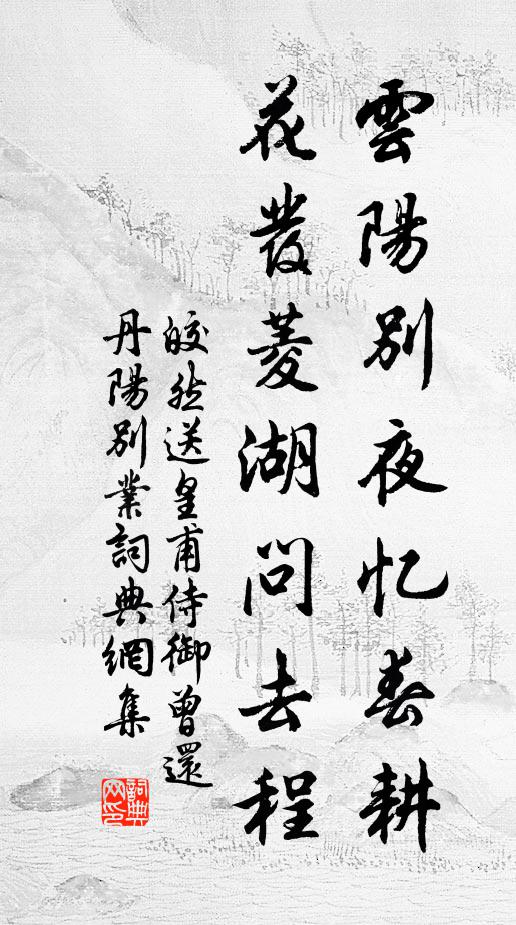 雲陽別夜忆春耕
花發菱湖問去程
皎然送皇甫侍御曾還
丹陽別業詞典網集
詞典
网印